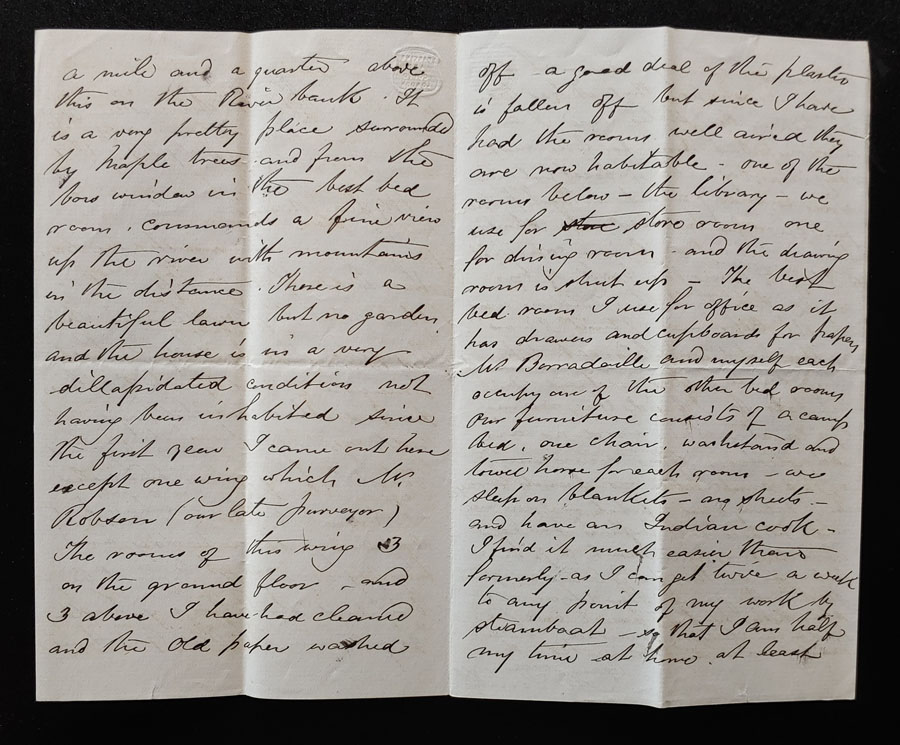 a mile and a quarter above
this on the River bank. It
is a very pretty place surrounded
by Maple trees and from the
bow window in the best bed
room, commands a fine view
up the river with mountains
in the distance. There is a
beautiful lawn but no garden
and the house is in a very
dillapidated condition not
having been inhabited since
the first year I came out here
except one wing which Mr
Robson (our late purveyor)
The rooms of this wing 3
on the ground floor - and
3 above I have had cleaned
and the old paper washed
off - a good deal of the plaster
is fallen off but since I have
had the rooms well aired they
are now habitable - one of the
rooms below - the library - we
use for store store room one
for dining room - and the drawing
room is shut up - The best
bed room I use for office as it
has drawers and cupboards for papers
Mr Borradaille and myself each
occupy one of the other bed rooms
Our furniture consists of a camp
bed, one chair, washstand and
towel horse for each room - we
sleep on blankets - no sheets -
and have an Indian cook -
I find it much easier than
formerly - as I can get twice a week
to any point of my work by
steamboat - so that I am half
my time at home at least